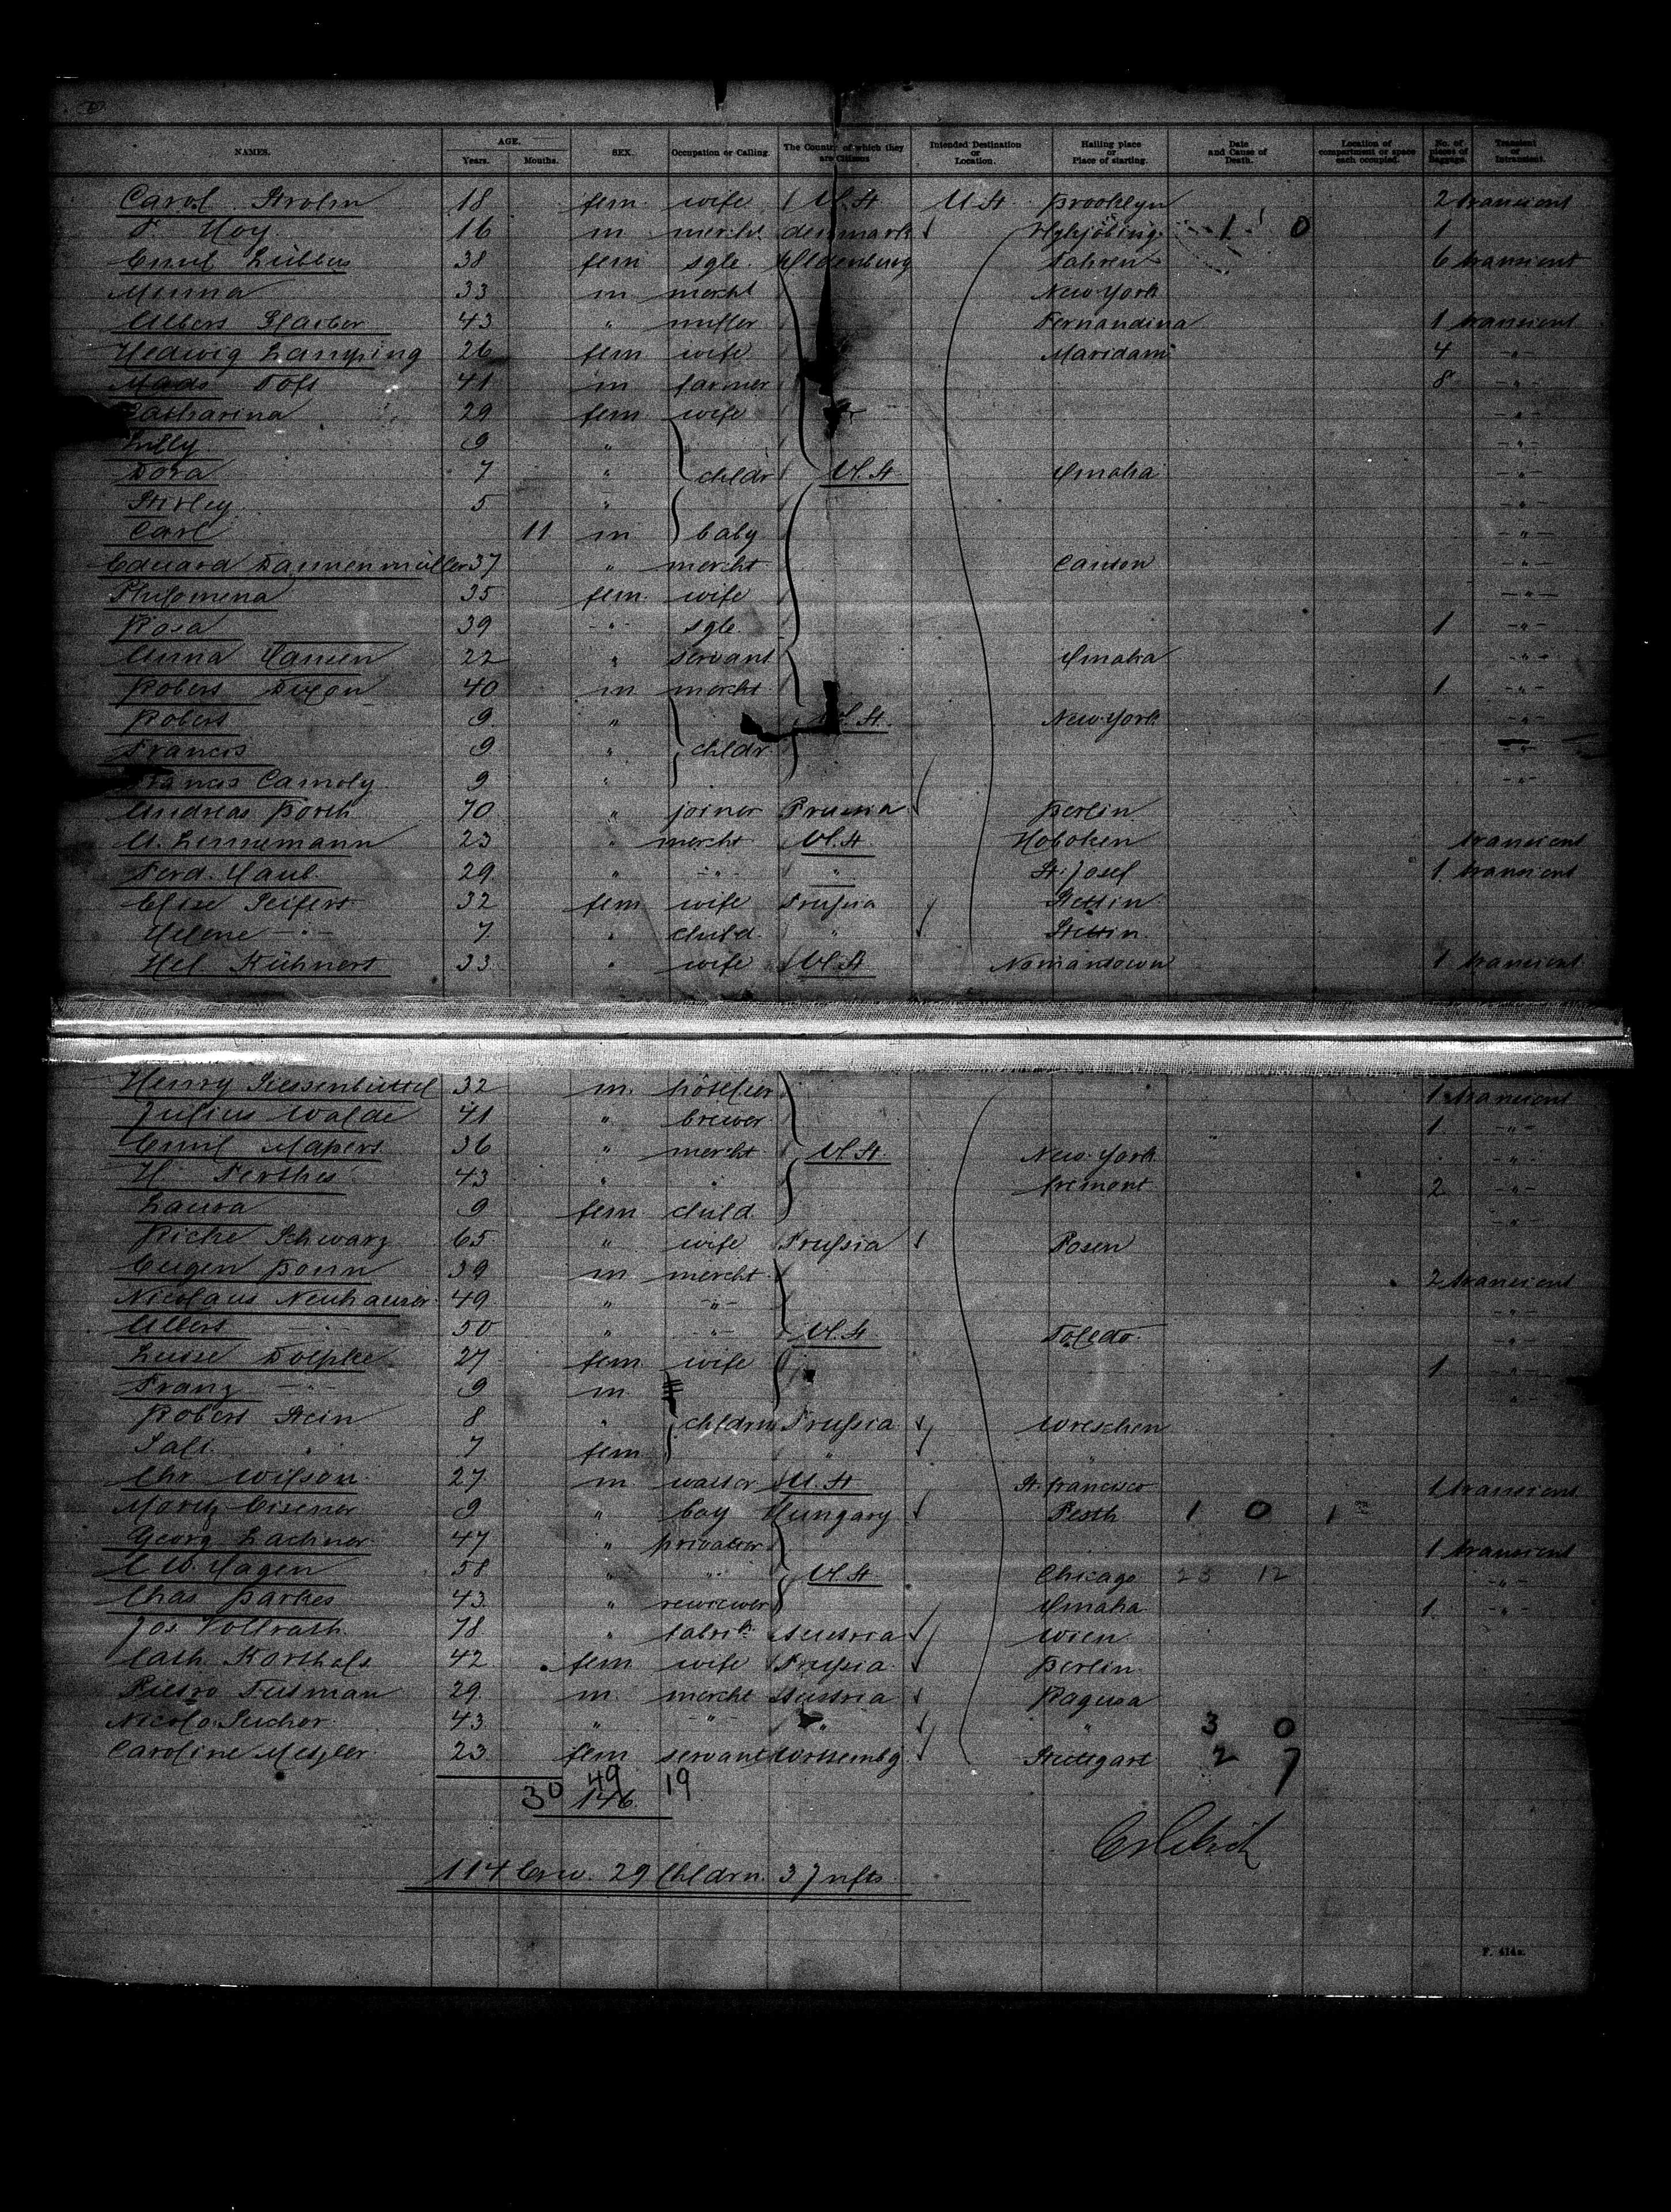 NAMES. AGE. Years. Months. SEX. Occupation or Calling. The Country of which they are Citizens Intended Destination or Location. Hailing place or Place of starting. Date and Cause of Death. Location of compartment or space each occupied. No. of pieces of Baggage. Transient or Intransient.
Carol Strohm 18 fem wife U.St U.St. Brooklyn 2 transient
Hoy 16 m mercht denmark 1 0 1
Emil Lübbers 38 fem sgle. Oldenburg 6 transient
Minna 33 m mercht New-York
Albers 43 " Fernandina 1 transient
Hedwig Lamping 26 fem wife 4 -"-
Mads Toft 41 m farmer 8 -"-
Catharina 29 fem wife -"-
Lilly 9 " -"-
Dora 7 " childr U.St Omaha -"-
Stirley 5 " -"-
Carl 11 m baby -"-
Eduard Dannenmüller 37 " mercht Canton -"-
Philomena 35 fem. wife -"-
Rosa 39 -"- sgle. 1 -"-
Anna Hansen 22 " servant Omaha -"-
Robert Dixon 40 m mercht 1 -"-
Robert 9 " U.St. New-York -"-
Francis 9 " childr -"-
Francis Camoly 9 " -"-
Andreas Porth 70 " joiner Prussia Berlin
A. Linnemann 23 " mercht U.St. Hoboken transient
Ferd. Haub 29 " -"- " St. Josef 1 transient
Elise Seifert 32 fem wife Prussia Stettin
Helene -"- 7 " child " Stettin
Hel Kühnert 33 " wife U.St 1 transient
Henry Siessenbüttel 32 m. 1 transient
Julius Walde 41 " brewer 1 -"-
Emil Mapert 36 " mercht U.St. New-York -"-
H Perthes 43 " " fremont 2 -"-
Laura 9 fem child -"-
Ricke Schwarz 65 " wife Prussia Posen
Eugen Bonn 39 m mercht 2 transient
Nicolaus Neuhauser 49 " -"- -"-
Albert -"- 50 " -"- U.St Toledo -"-
Luise Dolpke 27 fem wife 1 -"-
Franz -"- 9 m "
Robert Stein 8 " childrn Prussia Wreschen
Sali " 7 fem "
Chr Wilson 27 m U.St St. francisco 1 transient
Moritz Eisener 9 " boy Hungary Pesth 1 0 1
Georg Lachner 47 " privatier 1 transient
C W. Hagen 58 " " U.St Chicago 23 12 -"-
Chas Parkes 43 " Omaha 1 -"-
Jos Vollrath 78 " fabrik Austria Wien
Cath Korthals 42 fem wife Prussia Berlin
Pietro Tusman 29 m. mercht Austria Ragusa
Nicolo Suchor 43 " -"- " " 3 0
Caroline Metzler 23 fem servant Wortembg Stuttgart 2 7
30 49 19
146
114 Erw. 29 Chldrn. 3 Infts
F. 414a.